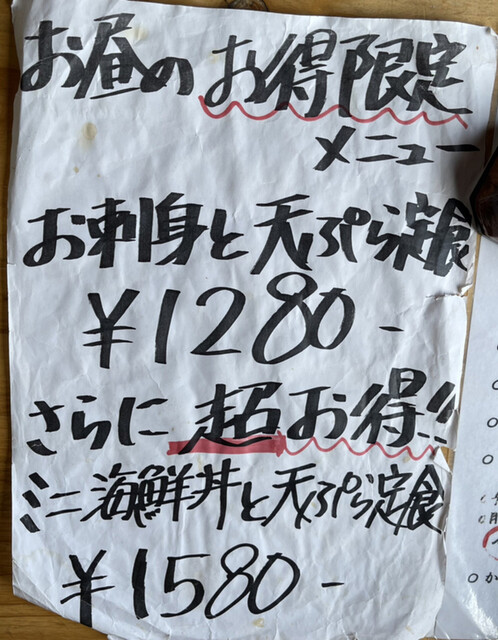 お昼のお得限定
メニュー
お刺身と天ぷら定食
¥1280-
さらに超お得!!
ミニ海鮮丼と天ぷら定食
¥1580-